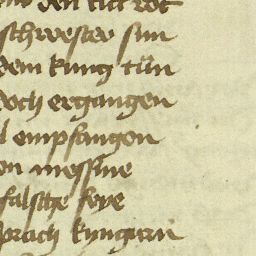 den ritt rot
schwester sun
dem kung tün
doch ergangen
empfangen
messine
falsche feye
sprach kungurn